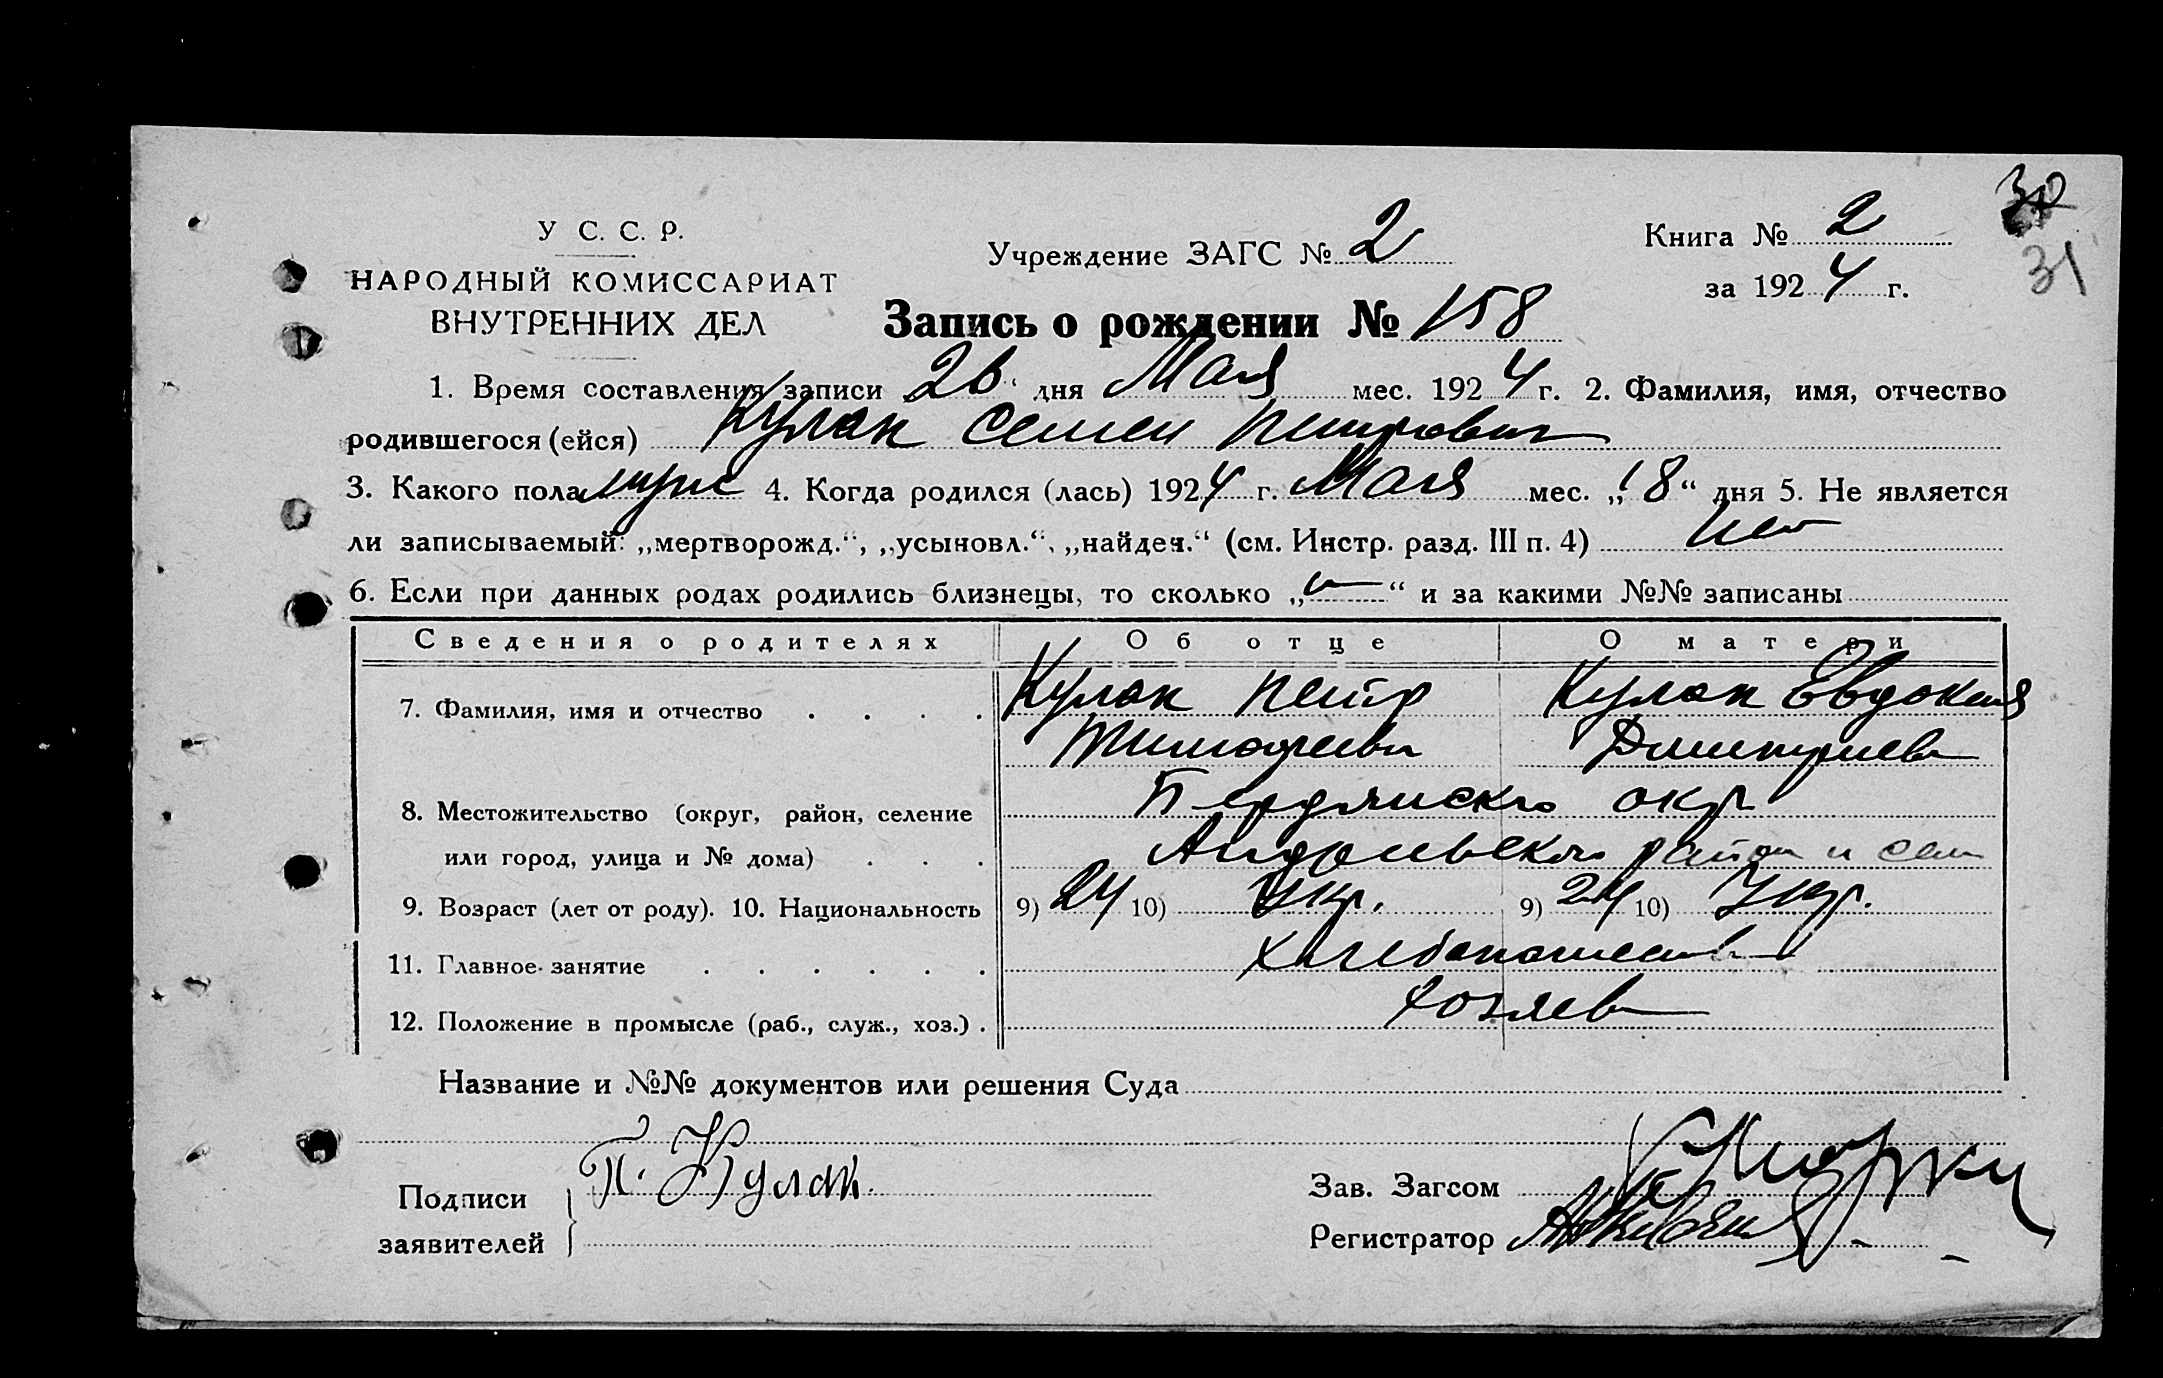 У. С. С. Р.
НАРОДНЫЙ КОМИССАРИАТ
ВНУТРЕННИХ ДЕЛ
Учреждение ЗАГС № 2
Книга № 2
за 1924 г.
31
Запись о рождении № 158
1. Время составления записи 26 дня Мая мес. 1924 г. 2. Фамилия, имя, отчество
родившегося (ейся) Кулак Семен Петрович
3. Какого пола муж 4. Когда родился (лась) 1924 г. Мая мес. „18“ дня 5. Не является
ли записываемый: „мертворожд.“, „усыновл.“, „найден.“ (см. Инстр. разд. III п. 4) нет
6. Если при данных родах родились близнецы, то сколько „—“ и за какими №№ записаны
Сведения о родителях Об отце О матери
7. Фамилия, имя и отчество Кулак Петр Кулак Евдокия
Тимофеев Дмитриев
8. Местожительство (округ, район, селение Бердянского окр
или город, улица и № дома) Андреевского район и село
9. Возраст (лет от роду). 10. Национальность 9) 24 10) Укр. 9) 24 10) Укр.
11. Главное занятие Хлебопашество
12. Положение в промысле (раб., служ., хоз.) хозяев
Название и №№ документов или решения Суда
Подписи П. Кулак.
заявителей
Зав. Загсом
Регистратор